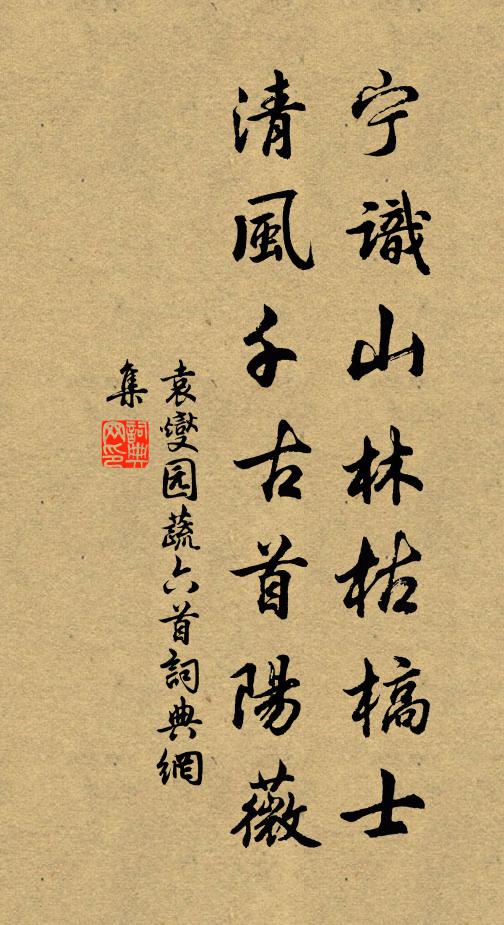 宁識山林枯槁士
清風千古首陽薇
袁燮园蔬六首詞典網
集
詞典
网印